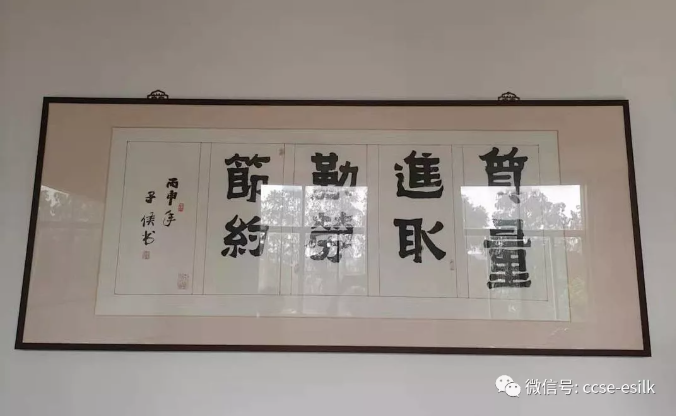 質量
進取
勤勞
節約
丙申年
子侯书
微信号: ccse-esilk